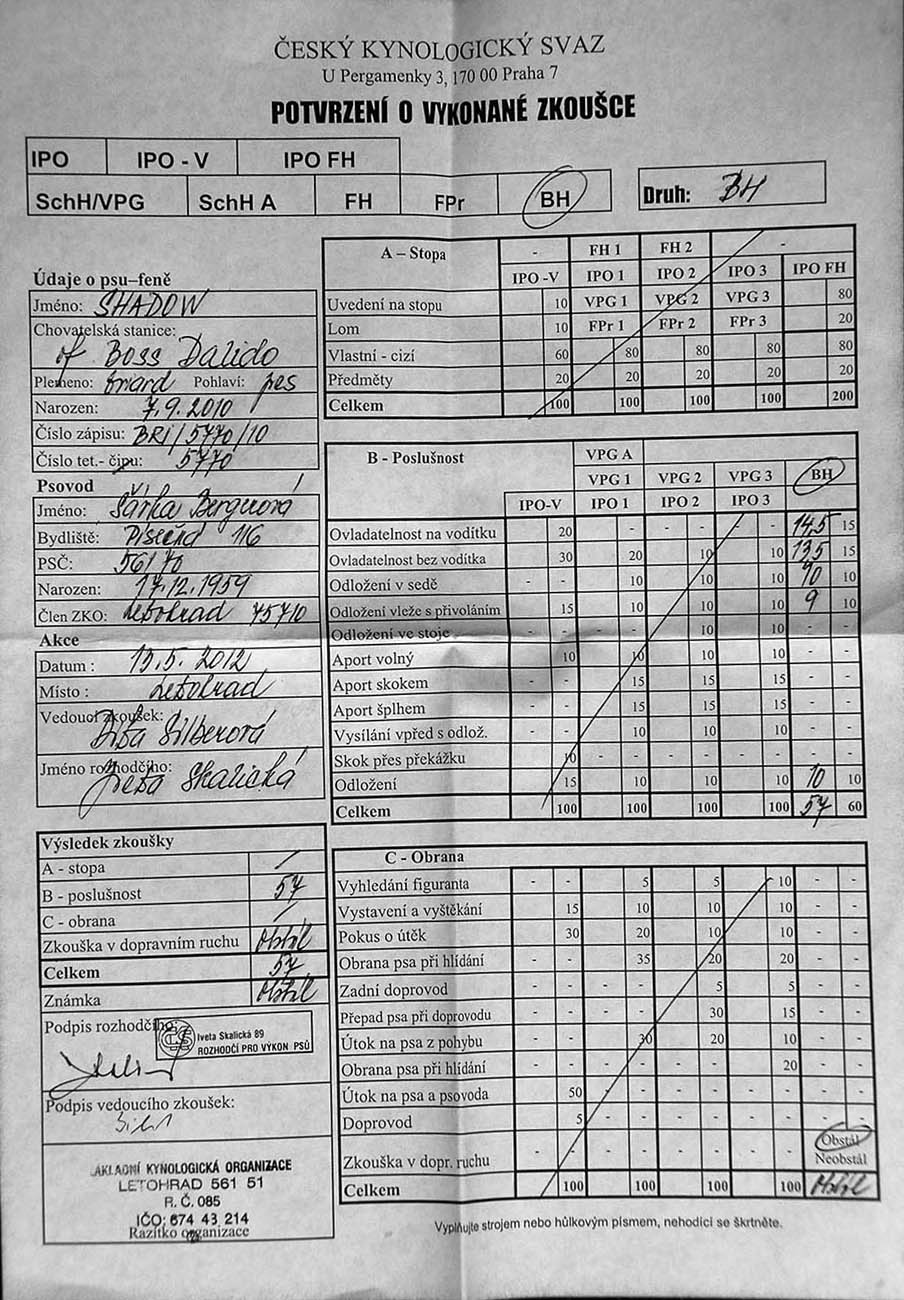 ČESKÝ KYNOLOGICKÝ SVAZ
U Pergamenky 3, 170 00 Praha 7
POTVRZENÍ O VYKONANÉ ZKOUŠCE
IPO IPO - V IPO FH
SchH/VPG SchH A FH FPr BH
Druh: BH
Údaje o psu–feně
Jméno: SHADOW
Chovatelská stanice:
of Boss Dalido
Plemeno: briard Pohlaví: pes
Narozen: 7.9.2010
Číslo zápisu: BRI/5770/10
Číslo tet.- čipu: 5770
Psovod
Jméno: Šárka Bergerová
Bydliště: Písečná 116
PSČ: 56170
Narozen: 17.12.1959
Člen ZKO: Letohrad 75710
Akce
Datum : 13.5. 2012
Místo : Letohrad
Vedoucí zkoušek:
Silberová
Jméno rozhodčího:
Iveta Skalická
Výsledek zkoušky
A - stopa /
B - poslušnost 57
C - obrana /
Zkouška v dopravním ruchu obstál
Celkem 57
Známka obstál
Podpis rozhodčího
Iveta Skalická 89
ROZHODČÍ PRO VÝKON PSŮ
Podpis vedoucího zkoušek:
ÁKLADNÍ KYNOLOGICKÁ ORGANIZACE
LETOHRAD 561 51
R. Č. 085
IČO: 674 43 214
Razítko organizace
A – Stopa - FH 1 FH 2 -
IPO -V IPO 1 IPO 2 IPO 3 IPO FH
Uvedení na stopu 10 VPG 1 VPG 2 VPG 3 80
Lom 10 FPr 1 FPr 2 FPr 3 20
Vlastní - cizí 60 80 80 80 80
Předměty 20 20 20 20 20
Celkem 100 100 100 100 200
B - Poslušnost VPG A
VPG 1 VPG 2 VPG 3 BH
IPO-V IPO 1 IPO 2 IPO 3
Ovladatelnost na vodítku 20 - - - - - - 14,5 15
Ovladatelnost bez vodítka 30 20 10 10 13,5 15
Odložení v sedě - - 10 10 10 10 10
Odložení vleže s přivoláním 15 10 10 10 9 10
Odložení ve stoje - - - - 10 10 - -
Aport volný 10 10 10 10 - -
Aport skokem - - 15 15 15 - -
Aport šplhem - - 15 15 15 - -
Vysílání vpřed s odlož. - - 10 10 10 - -
Skok přes překážku 10 - - - - - - - -
Odložení 15 10 10 10 10 10
Celkem 100 100 100 100 57 60
C - Obrana
Vyhledání figuranta - - 5 5 10 - -
Vystavení a vyštěkání 15 10 10 10 - -
Pokus o útěk 30 20 10 10 - -
Obrana psa při hlídání - - 35 20 20 - -
Zadní doprovod - - - - 5 5 - -
Přepad psa při doprovodu - - - - 30 15 - -
Útok na psa z pohybu - - 30 20 10 - -
Obrana psa při hlídání - - - - - - 20 - -
Útok na psa a psovoda 50 - - - - - - - -
Doprovod 5 - - - - - -
Obstál
Zkouška v dopr. ruchu - - - - - - - - Neobstál
Celkem 100 100 100 100 obstál
Vyplňujte strojem nebo hůlkovým písmem, nehodící se škrtněte.